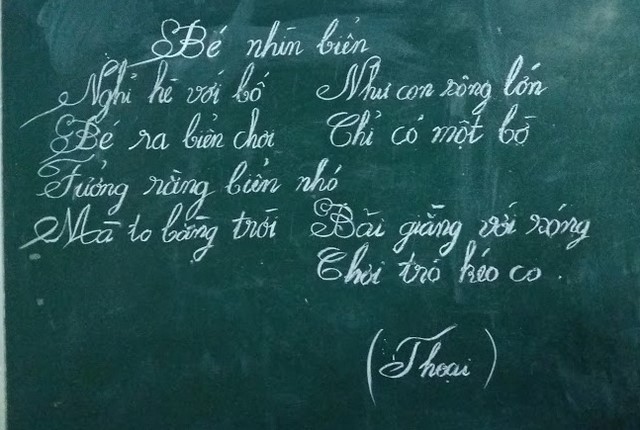 Bé nhìn biển
Nghỉ hè với bố
Bé ra biển chơi
Tưởng rằng biển nhỏ
Mà to bằng trời
Như con sông lớn
Chỉ có một bờ
Bãi giằng với sóng
Chơi trò kéo co.
(Thoại)